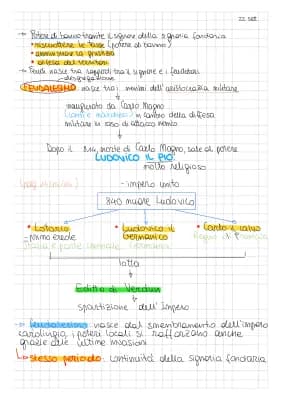 22 set
→ Potere di banno tramite il signore della signoria fondiaria
• riscuotere le tasse (potere di banno)
• amministrare la giustizia
• difesa dei territori
→ Feudi nasce tra rapporti tra il signore e i feudatari
FEUDALESIMO: nasce tra i membri dell'aristocrazia militare
inaugurato da Carlo Magno
in cambio della difesa
militare in caso di attacco nemico
Dopo il 814, morte di Carlo Magno, sale al potere
LUDOVICO IL PIO:
molto religioso
- impero unito
840 muore Ludovico
• Lotario • Ludovico il Germanico • Carlo il calvo
- primo erede
Germania
lotta
Editto di Verdun
spartizione dell'Impero
→ feudalesimo nasce dal smembramento dell'impero
carolingio, i poteri locali si rafforzano anche
grazie alle ultime invasioni
↳ stesso periodo: continuità della signoria fondiaria